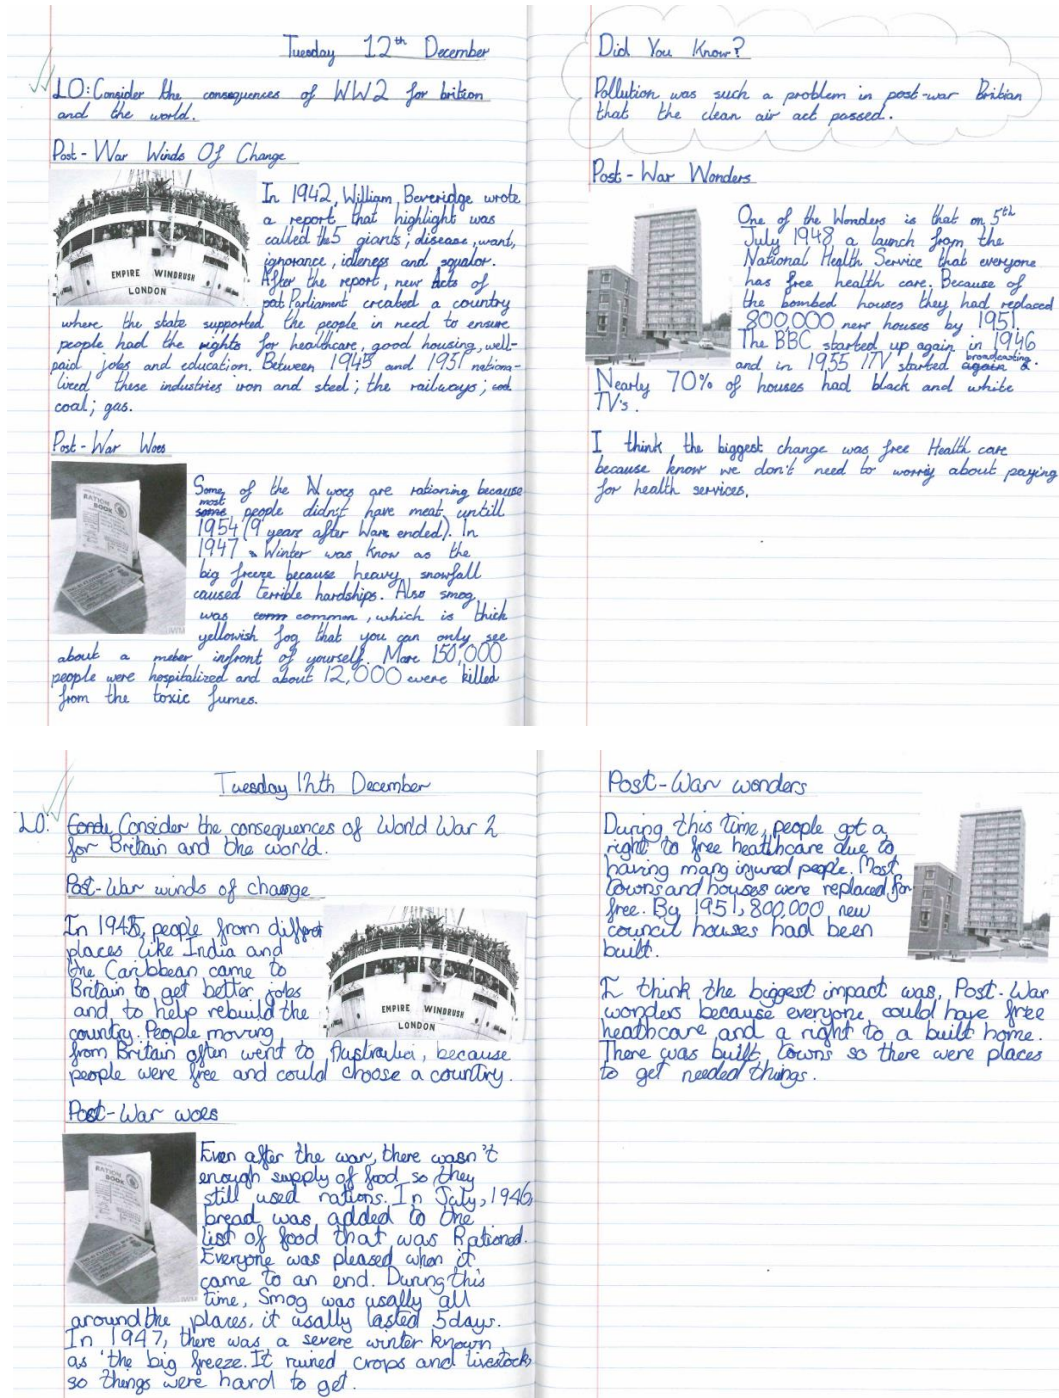 Tuesday 12th December
LO: Consider the consequences of WW2 for brition
and the world.
Post-War Winds Of Change
EMPIRE WINDRUSH
LONDON
In 1942, William Beveridge wrote
a report that highlight was
called the 5 giants; disease, want,
ignorance, idleness and squalor.
After the report, new Acts of
pat Parliament created a country
where the state supported the people in need to ensure
people had the rights for healthcare, good housing, well-
paid jobs and education. Between 1945 and 1951 nationa-
lized these industries iron and steel; the railways; and
coal; gas.
Post-War Woes
RATION
BOOK
Some of the N woes are rationing because
most
some people didn't have meat untill
1954 (9 years after War ended). In
1947 Winter was know as the
big freeze because heavy snowfall
caused terrible hardships. Also smog
was comm common, which is thick
yellowish fog that you can only see
about a meter infront of yourself. More 150,000
people were hospitalized and about 12,000 were killed
from the toxic fumes.
Did You Know?
Pollution was such a problem in post-war Bribian
that the clean air act passed.
Post-War Wonders
One of the Wonders is that on 5th
July 1948 a launch from the
National Health Service that everyone
has free health care. Because of
the bombed houses they had replaced
800,000 new houses by 1951.
The BBC started up again in 1946
broadcasting
and in 1955 ITV started again.
Nearly 70% of houses had black and white
TV's.
I think the biggest change was free Health care
because know we don't need to worriy about paying
for health services.
Tuesday 12th December
LO: Consider the consequences of World War 2
for Britain and the world.
Post-War winds of change
In 1945, people from
places like India and
the Caribbean came to
Britain to get better jobs
and to help rebuild the
country. People moving
from Britain often went to Australia, because
people were free and could choose a country.
EMPIRE WINDRUSH
LONDON
Post-War woes
RATION
BOOK
Even after the war, there wasn't
enough supply of food so they
still used rations. In July, 1946,
bread was added to the
list of food that was Rationed.
Everyone was pleased when it
came to an end. During this
time, Smog was usally all
around the places, it usally lasted 5 days.
In 1947, there was a severe winter known
as 'the big freeze. It ruined crops and livestock,
so things were hard to get.
Post-War wonders
During this time, people got a
right to free heathcare due to
having many injured people. Most
towns and houses were replaced for
free. By 1951, 800,000 new
council houses had been
built.
I think the biggest impact was, Post-War
wonders because everyone could have free
heathcare and a right to a built home.
There was built towns so there were places
to get needed things.